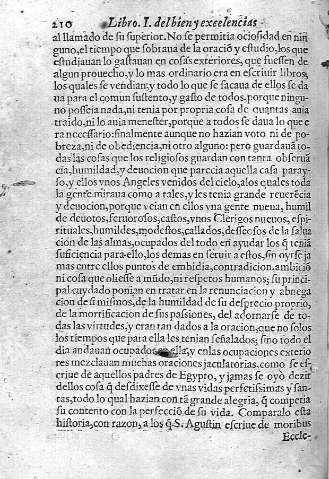 210 Libro. I. del bien y excelencias
al llamado de su superior. No se permitia ociosidad en nin
guno, el tiempo que sobraua de la oració y estudio, los que
estudiauan lo gastauan en cosas exteriores, que fuessen de
algun prouecho, y lo mas ordinario era en escriuir libros,
los quales se vendian: y todo lo que se sacaua de ellos se da
ua para el comun sustento, y gasto de todos, porque ningu-
no posseia nada, ni tenia por propria cosa de cuantas auia
traido, ni lo auia menester, porque a todos se daua lo que e
ra necessario: finalmente aunque no hazian voto ni de po-
breza, ni de obediencia, ni otro alguno: pero guardauā to
das las cosas que los religiosos guardan con tanta obserua
cia, humildad, y deuocion que parecia aquella casa paray-
so, y ellos vnos Angeles venidos del cielo, a los quales toda
la gente miraua como a tales, y les tenia grande reuerēcia
y deuocion, porque veian en ellos vna gente nueua, humil
de deuotos, feruorosos, castos, vnos Clerigos nueuos, espi-
rituales, humildes, modestos, callados, desseosos de la salua
cion de las almas, ocupados del todo en ayudar los q̄ teniā
suficiencia para ello, los demas en seruir a estos, sin oyrse ja
mas entre ellos puntos de embidia, contradicion, ambiciō
ni cosa que oliesse a mūdo, ni respetos humanos; su princi-
pal cuydado ponian en tratar en la renunciacion y abnega
cion de si mismos, de la humildad de su desprecio proprio,
de la mortificacion de sus passiones, del adornarse de to-
das las virtudes, y eran tan dados a la oracion, que no solos
los tiempos que para ella les tenian señalados; sino todo el
dia andauan ocupados en ella; y en las ocupaciones exterio
res mezclauan muchas oraciones jaculatorias, como se es-
criue de aquellos padres de Egypto, y jamas se oyò dezir
dellos cosa q̄ desdixesse de vnas vidas perfetissimas y san-
tas, todo lo qual hazian con tā grande alegria, q̄ competia
su contento con la perfecciō de su vida. Comparalo esta
historia, con razon, a los q̄ S. Agustin escriue de moribus
Eccle-